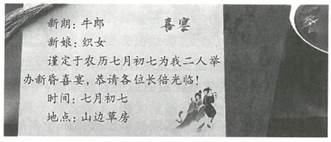 喜宴
新朗：牛郎
新娘：织女
谨定于农历七月初七为我二人举
办新昏喜宴，恭请各位长倍光临！
时间：七月初七
地点：山边草房